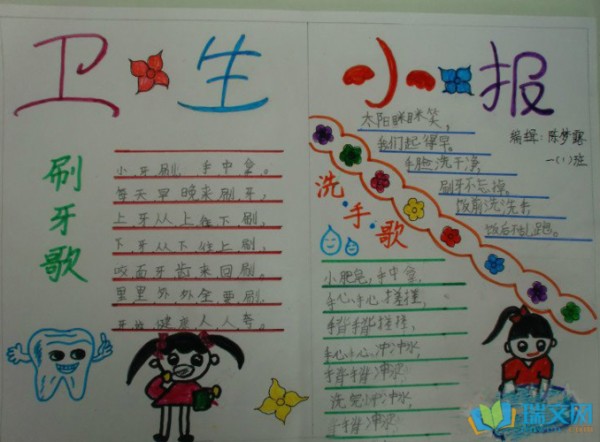 卫生
小报
刷牙歌
小牙刷，手中拿。
每天早晚来刷牙，
上牙从上往下刷，
下牙从下往上刷，
咬面牙齿来回刷。
里里外外全要刷，
牙齿健康人人夸。
太阳眯眯笑，
我们起得早。
手脸洗干净，
刷牙不忘掉。
饭前洗洗手，
饭后不乱跑。
编辑：陈梦露
一（1）班
洗手歌
小肥皂，手中拿，
手心手心搓搓，
手背手背搓搓，
手心手心冲冲水，
手背手背冲冲水，
洗完冲冲水
手背冲水
瑞文网